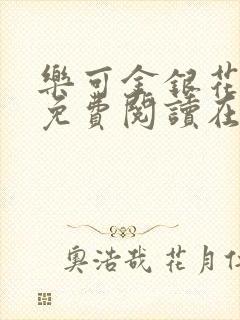 樂可金銀花
免費閱讀在
奧浩哉 花月仁